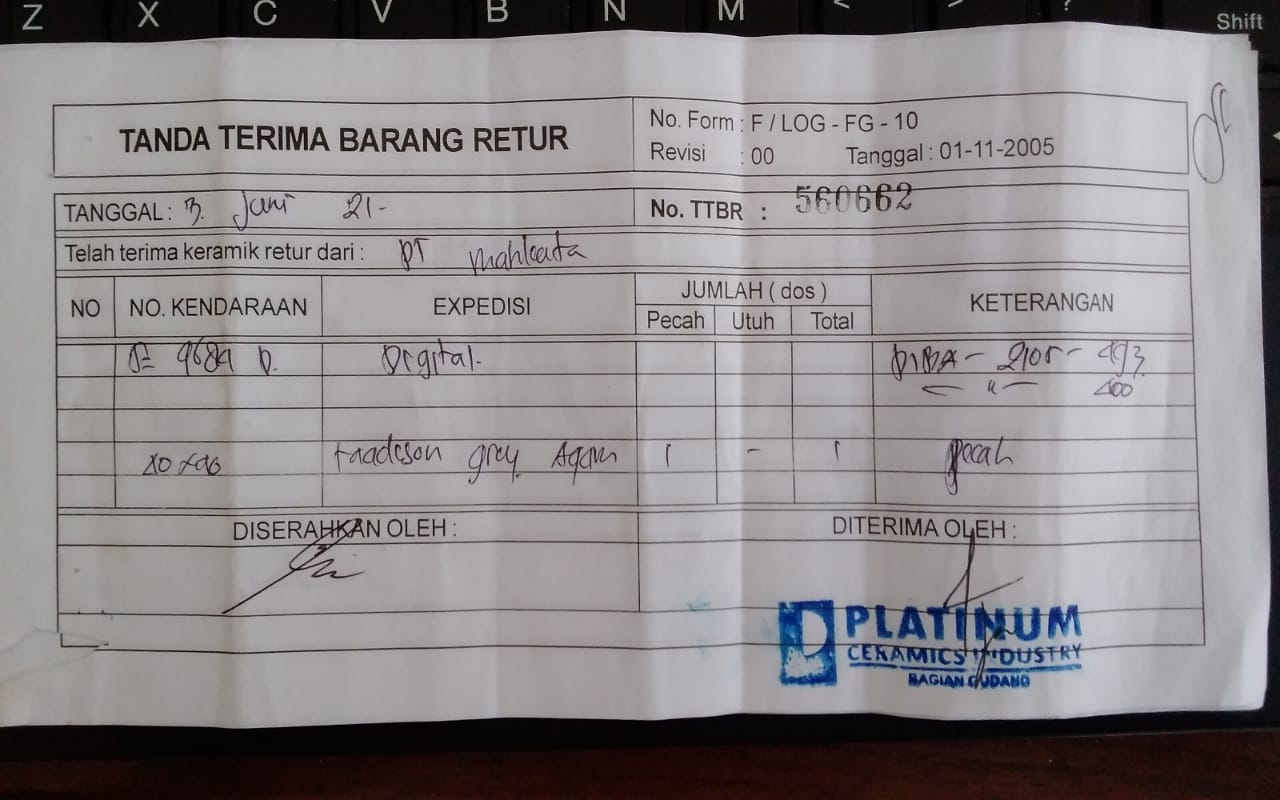 Z X C V B N M < > ? Shift
TANDA TERIMA BARANG RETUR
No. Form : F / LOG - FG - 10
Revisi : 00 Tanggal : 01-11-2005
TANGGAL : 3. Juni 21-
No. TTBR : 560662
Telah terima keramik retur dari : PT
NO NO. KENDARAAN EXPEDISI JUMLAH ( dos ) KETERANGAN
Pecah Utuh Total
9689 D. Digital. 2105 - 493
400
grey 1 - 1 pecah
DISERAHKAN OLEH : DITERIMA OLEH :
PLATINUM
CERAMICS INDUSTRY
BAGIAN GUDANG